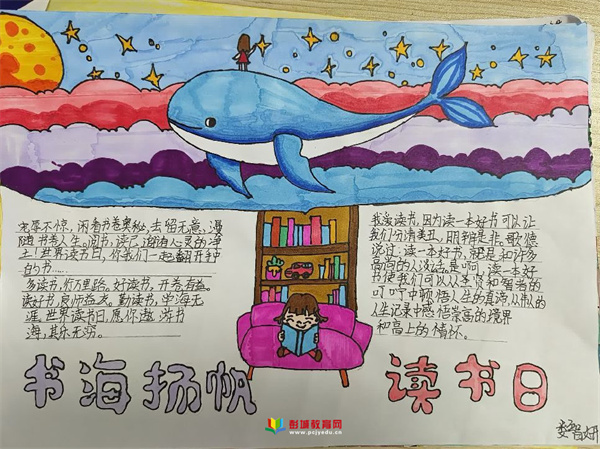 宠辱不惊,闲看书卷奥秘,去留无意,漫
随书卷人生。阅书,读己,谢有心灵的净
土!世界读书日,你我们一起翻开手中
的书……
多读书,行万里路,好读书,开卷有益。
读好书,良师益友。勤读书,学海无
涯,世界读书日,愿你遨游书
海,其乐无穷。
我爱读书,因为读一本好书可以让
我们分清美丑,明辨是非。歌德
说过:读一本好书,就是和许多
高尚的人谈话。是啊,读一本好
书使我们可以从
叮咛中领悟人生的真谛,从他人的
人生记录中感悟崇高的境界
和高上的情怀。
书海扬帆
读书日
彭城教育网
www.pcjyedu.cn